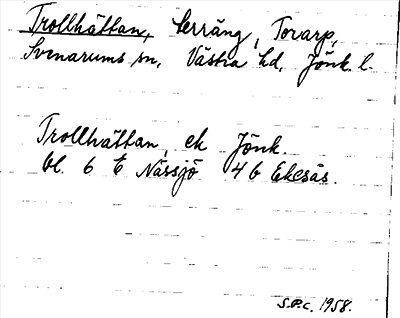 Trollhättan, terräng, Tovarp,
Svenarums sn, Västra hd, Jönk. l.
Trollhättan, ek Jönk.
bl. 6 E Nässjö 46 Eksjö.
S.P.C. 1958.